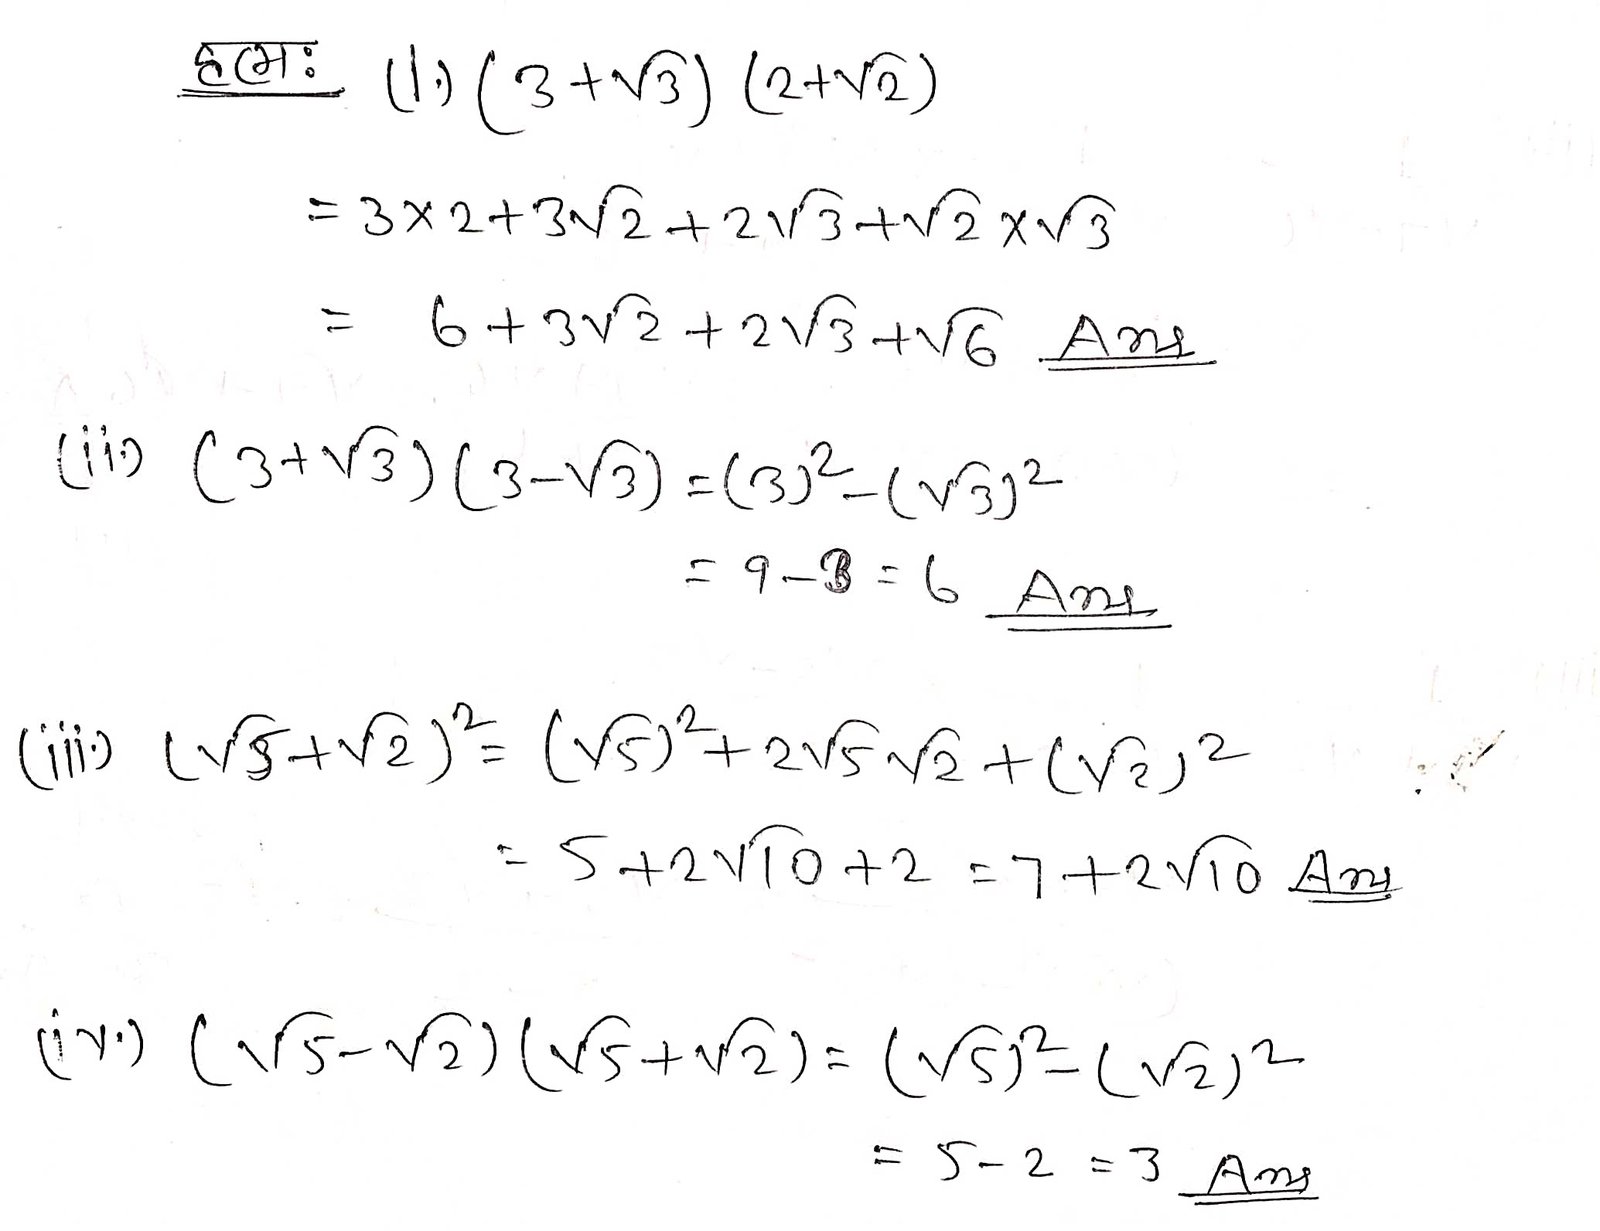 हलः (i.) (3+√3) (2+√2)
= 3×2+3√2+2√3+√2×√3
= 6+3√2+2√3+√6 Ans
(ii) (3+√3)(3-√3) = (3)²-(√3)²
= 9-3 = 6 Ans
(iii.) (√5+√2)² = (√5)²+2√5√2+(√2)²
= 5+2√10+2 = 7+2√10 Ans
(iv.) (√5-√2)(√5+√2) = (√5)²-(√2)²
= 5-2 = 3 Ans